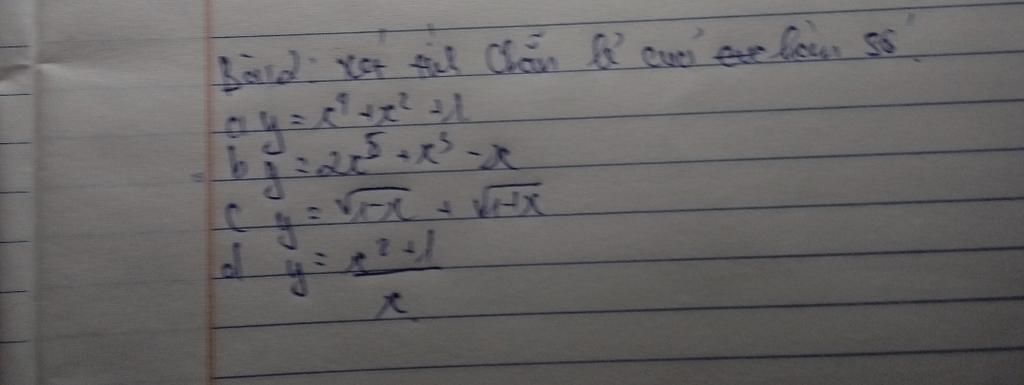 Bài 2: xét tính chẵn lẻ của hàm số
a y = x⁴ + x² + 1
b y = 2x⁵ + x³ - x
c y = √1-x + √1+x
d y = x² + 1 / x